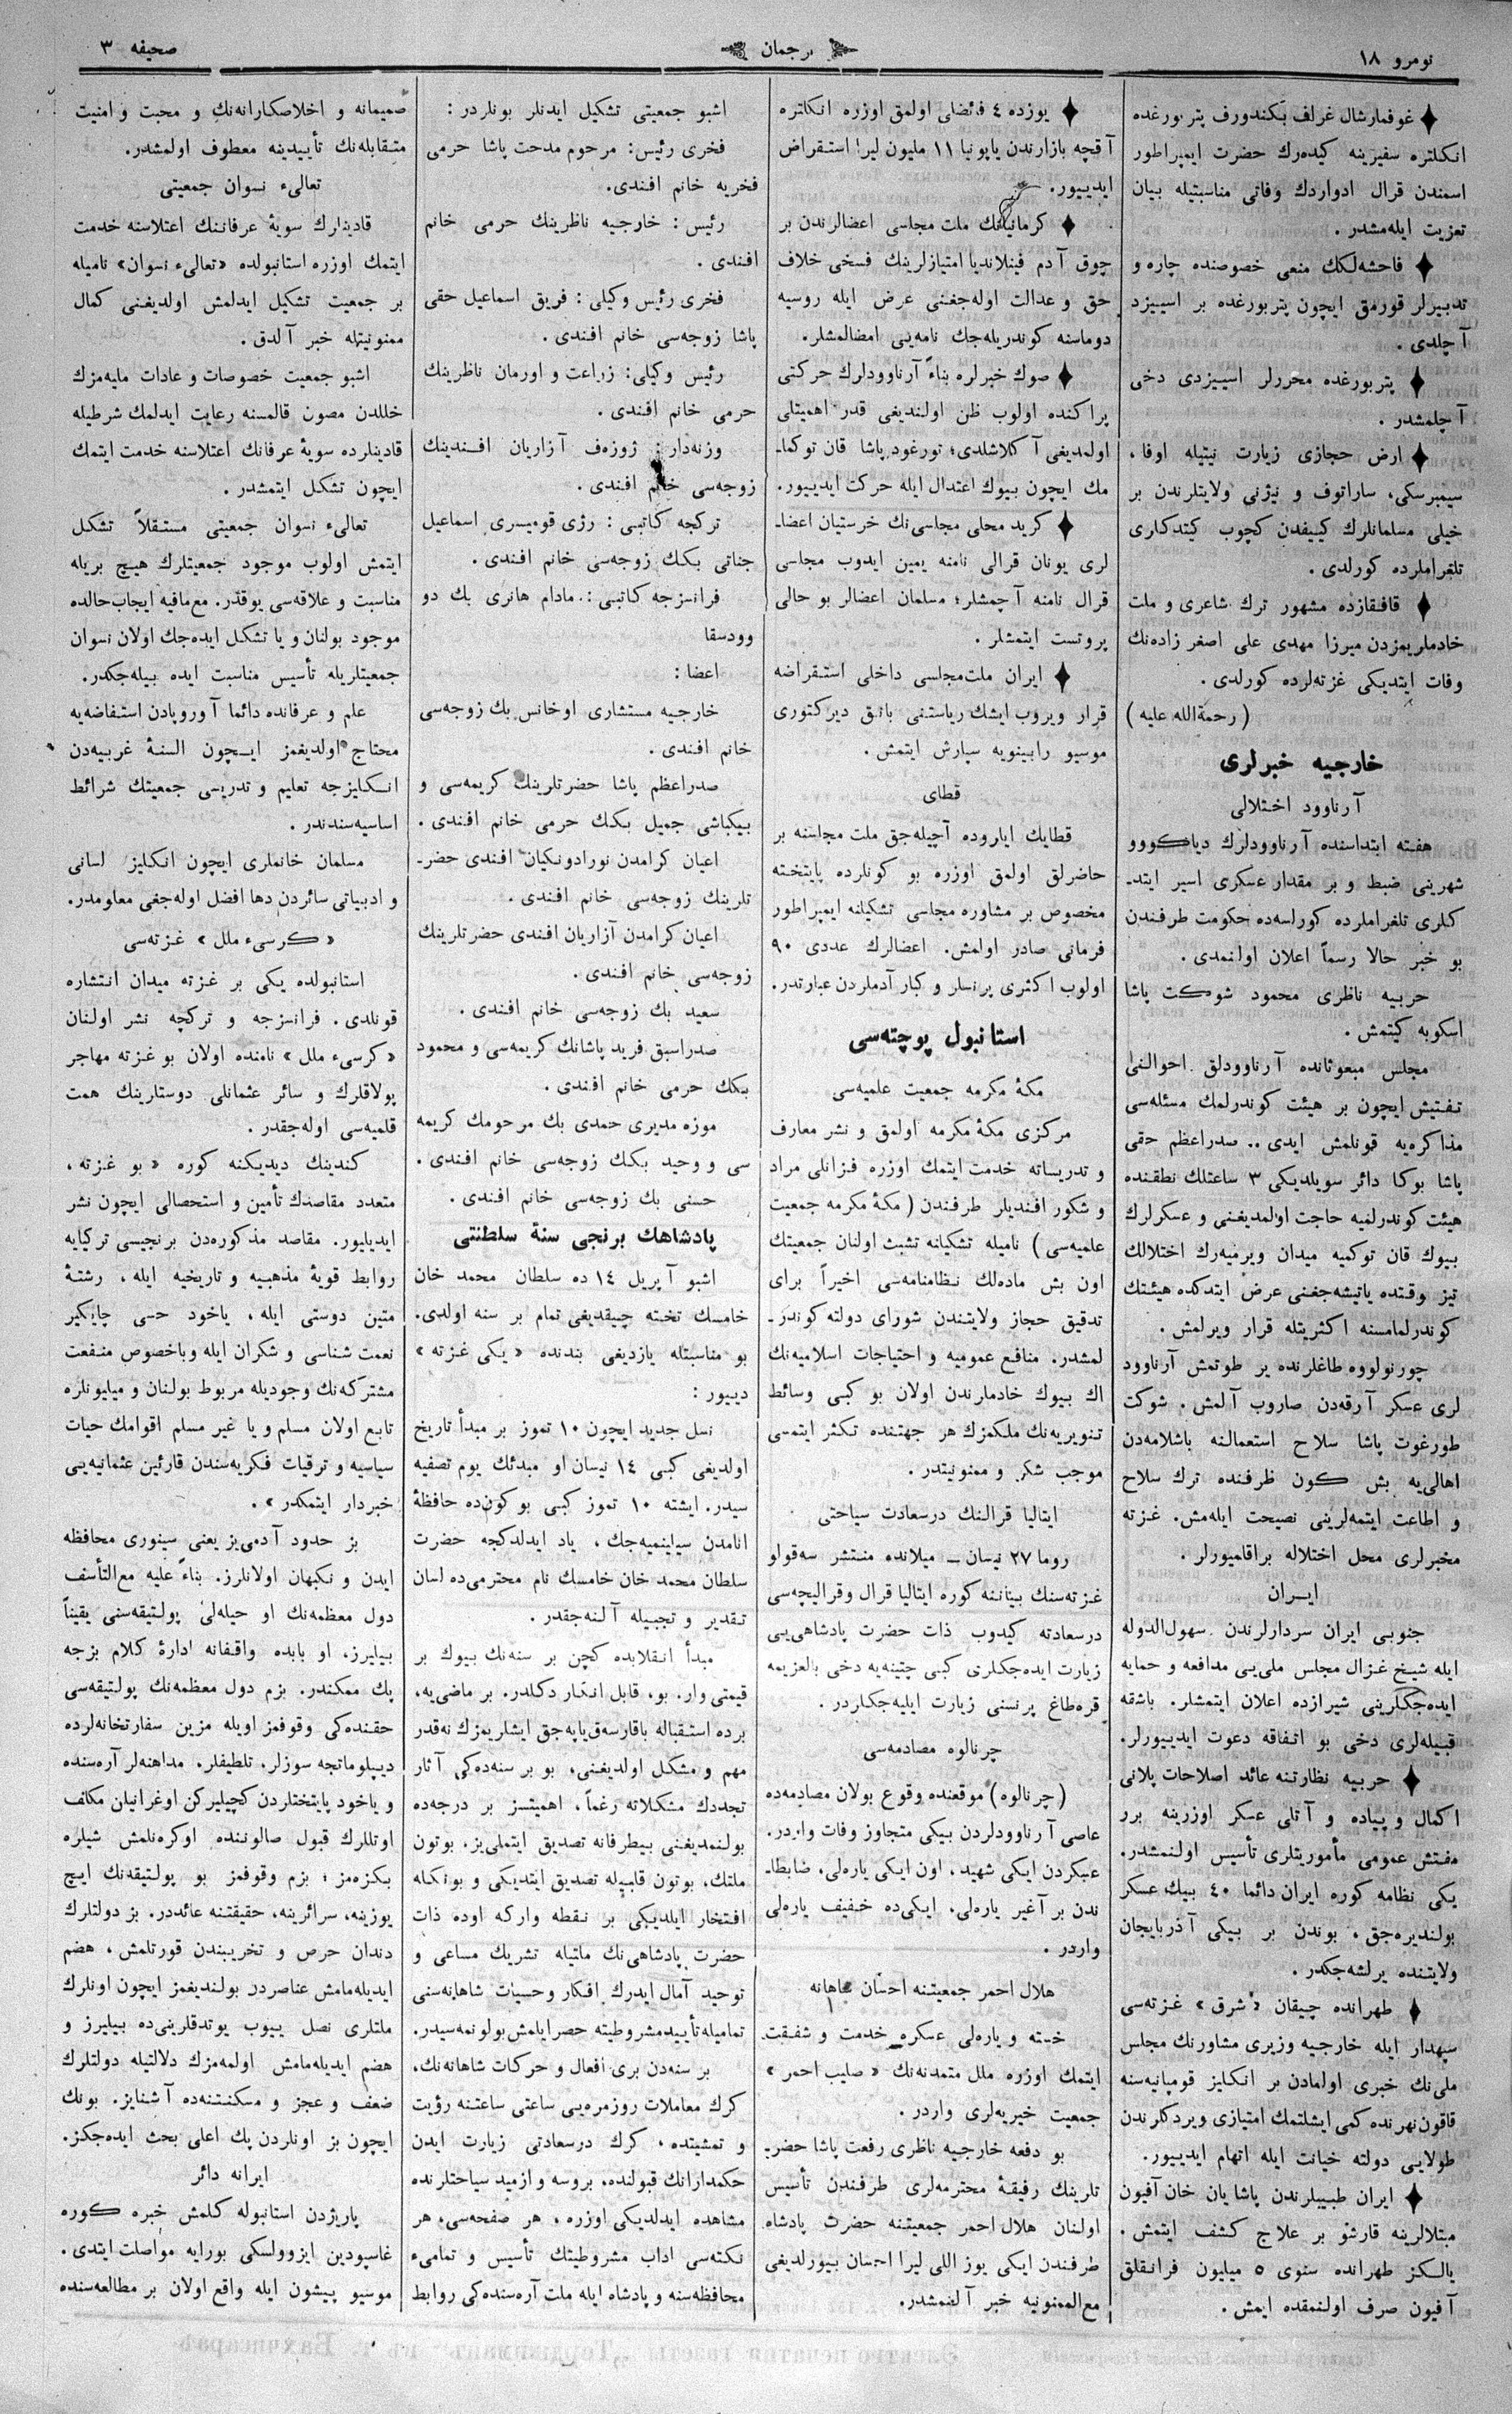 نومرو ١٨
ترجمان
صحيفه ٣
غوفمارشال غراف بنكندورف پتربورغده
انكلتره سفيرينه كيده‌رك حضرت ايمپراطور
اسمندن قرال ادواردك وفاتى مناسبتيله بيان
تعزيت ايله‌مشدر .
فاحشه‌لكك منعى خصوصنده چاره و
تدبيرلر قورمق ايچون پتربورغده بر اسييزد
آچلدى .
پتربورغده محررلر اسييزدى دخى
آچلمشدر .
ارض حجازى زيارت نيتيله اوفا ،
سيمبرسكى، ساراتوف و نيژنى ولايتلرندن بر
خيلى مسلمانلرك كييفدن كچوب كيتدكلرى
تلغراملرده كورلدى .
قافقازده مشهور ترك شاعرى و ملت
خادملريمزدن ميرزا مهدى على اصغر زاده‌نك
وفات ايتديكى غزته‌لرده كورلدى .
( رحمةالله عليه )
خارجيه خبرلرى
آرناوود اختلالى
هفته ابتداسنده آرناوودلرك دياكووو
شهرينى ضبط و بر مقدار عسكرى اسير ايتد‌ـ
كلرى تلغراملرده كورلسه‌ده حكومت طرفندن
بو خبر حالا رسماً اعلان اولنمدى .
حربيه ناظرى محمود شوكت پاشا
اسكوبه كيتمش .
مجلس مبعوثانده آرناوودلق احوالنى
تفتيش ايچون بر هيئت كوندرلمك مسئله‌سى
مذاكره‌يه قونلمش ايدى .. صدراعظم حقى
پاشا بوكا دائر سويلديكى ٣ ساعتلك نطقنده
هيئت كوندرلميه حاجت اولمديغنى و عسكرلرك
بيوك قان توكميه ميدان ويرميه‌رك اختلالك
تيز وقتده ياتيشه‌جغنى عرض ايتدكده هيئتك
كوندرلمامسنه اكثريتله قرار ويرلمش .
چورنولووه طاغلرنده ير طوتمش آرناوود
لرى عسكر آرقه‌دن صاروب آلمش . شوكت
طورغوت پاشا سلاح استعمالنه باشلامه‌دن
اهالى‌يه بش كون ظرفنده ترك سلاح
و اطاعت ايتمه‌لرينى نصيحت ايله‌مش. غزته
مخبرلرى محل اختلاله براقلميورلر .
ايران
جنوبى ايران سردارلرندن سهول‌الدوله
ايله شيخ غزال مجلس ملى‌يى مدافعه و حمايه
ايده‌جكلرينى شيرازده اعلان ايتمشلر. باشقه
قبيله‌لرى دخى بو اتفاقه دعوت ايدييورلر.
حربيه نظارتنه عائد اصلاحات پلانى
اكمال و پياده و آتلى عسكر اوزرينه برر
مفتش عمومى مأموريتلرى تأسيس اولنمشدر.
يكى نظامه كوره ايران دائما ٤٠ بيك عسكر
بولنديره‌جق ، بوندن بر بيكى آذربايجان
ولايتنده يرلشه‌جكدر .
طهرانده چيقان «شرق» غزته‌سى
سپهدار ايله خارجيه وزيرى مشاورنك مجلس
ملى‌نك خبرى اولمادن بر انكليز قومپانيه‌سنه
قاقون‌نهرنده كمى ايشلتمك امتيازى ويردكلرندن
طولايى دولته خيانت ايله اتهام ايدييور.
ايران طبيبلرندن پاشا يان خان آفيون
مبتلالرينه قارشو بر علاج كشف ايتمش .
يالكز طهرانده سنوى ٥ ميليون فرانقلق
آفيون صرف اولنمقده ايمش .
يوزده ٤ فائضلى اولمق اوزره انكلتره
آقچه بازارندن ياپونيا ١١ مليون ليرا استقراض
ايدييور.
كرمانيانك ملت مجلسى اعضالرندن بر
چوق آدم فينلانديا امتيازلرينك فسخى خلاف
حق و عدالت اوله‌جغنى عرض ايله روسيه
دوماسنه كوندريله‌جك نامه‌يى امضالمشلر.
صوك خبرلره بناءً آرناوودلرك حركتى
پراكنده اولوب ظن اولنديغى قدر اهميتلى
اولمديغى آكلاشلدى؛ تورغود پاشا قان توكماـ
مك ايچون بيوك اعتدال ايله حركت ايدييور.
كريد محلى مجلسى‌نك خرستيان اعضاـ
لرى يونان قرالى نامنه يمين ايدوب مجلسى
قرال نامنه آچمشلر؛ مسلمان اعضالر بو حالى
پروتست ايتمشلر .
ايران ملت‌مجلسى داخلى استقراضه
قرار ويروب ايشك رياستنى بانق ديركتورى
موسيو رابينويه سپارش ايتمش .
قطاى
قطايك اياروده آچيله‌جق ملت مجلسنه بر
حاضرلق اولمق اوزره بو كونلرده پايتخته
مخصوص بر مشاوره مجلسى تشكيلنه ايمپراطور
فرمانى صادر اولمش. اعضالرك عددى ٩٠
اولوب اكثرى پرنسلر و كبار آدملردن عبارتدر.
استانبول پوچته‌سى
مكۀ مكرمه جمعيت علميه‌سى
مركزى مكۀ مكرمه اولمق و نشر معارف
و تدريساته خدمت ايتمك اوزره قزانلى مراد
و شكور افنديلر طرفندن ( مكۀ مكرمه جمعيت
علميه‌سى ) ناميله تشكيلنه تشبث اولنان جمعيتك
اون بش ماده‌لك نظامنامه‌سى اخيراً براى
تدقيق حجاز ولايتندن شوراى دولته كوندرـ
لمشدر. منافع عموميه و احتياجات اسلاميه‌نك
اك بيوك خادملرندن اولان بو كبى وسائط
تنويريه‌نك ملكمزك هر جهتنده تكثر ايتمسى
موجب شكر و ممنونيتدر .
ايتاليا قرالنك درسعادت سياحتى
روما ٢٧ نيسان ـ ميلانده منتشر سه‌قولو
غزته‌سنك بياننه كوره ايتاليا قرال و قراليچه‌سى
درسعادته كيدوب ذات حضرت پادشاهى‌يى
زيارت ايده‌جكلرى كبى چتينه‌يه دخى بالعزيمه
قره‌طاغ پرنسنى زيارت ايليه‌جكلردر .
چرنالوه مصادمه‌سى
(چرنالوه) موقعنده وقوع بولان مصادمه‌ده
عاصى آرناوودلردن بيكى متجاوز وفات واردر.
عسكردن ايكى شهيد، اون ايكى ياره‌لى، ضابطاـ
ندن بر آغير ياره‌لى، ايكى‌ده خفيف ياره‌لى
واردر .
هلال احمر جمعيتنه احسان شاهانه
خسته و ياره‌لى عسكره خدمت و شفقت
ايتمك اوزره ملل متمدنه‌نك «صليب احمر»
جمعيت خيريه‌لرى واردر .
بو دفعه خارجيه ناظرى رفعت پاشا حضرـ
تلرينك رفيقۀ محترمه‌لرى طرفندن تأسيس
اولنان هلال احمر جمعيتنه حضرت پادشاه
طرفندن ايكى يوز اللى ليرا احسان بيورلديغى
مع‌الممنونيه خبر آلنمشدر.
اشبو جمعيتى تشكيل ايدنلر بونلردر :
فخرى رئيس: مرحوم مدحت پاشا حرمى
فخريه خانم افندى.
رئيس : خارجيه ناظرينك حرمى خانم
افندى .
فخرى رئيس وكيلى : فريق اسماعيل حقى
پاشا زوجه‌سى خانم افندى .
رئيس وكيلى: زراعت و اورمان ناظرينك
حرمى خانم افندى .
وزنه‌دار : ژوزه‌ف آزاريان افندينك
زوجه‌سى خانم افندى .
تركجه كاتبى : رژى قوميسرى اسماعيل
جنانى بكك زوجه‌سى خانم افندى .
فرانسزجه كاتبى : مادام هانرى بك دو
وودسقا
اعضا :
خارجيه مستشارى اوخانس بك زوجه‌سى
خانم افندى .
صدراعظم پاشا حضرتلرينك كريمه‌سى و
بيكباشى جميل بكك حرمى خانم افندى .
اعيان كرامدن نورادونكيان افندى حضرـ
تلرينك زوجه‌سى خانم افندى .
اعيان كرامدن آزاريان افندى حضرتلرينك
زوجه‌سى خانم افندى .
سعيد بك زوجه‌سى خانم افندى .
صدراسبق فريد پاشانك كريمه‌سى و محمود
بكك حرمى خانم افندى .
موزه مديرى حمدى بك مرحومك كريمه
سى و وحيد بكك زوجه‌سى خانم افندى .
حسنى بك زوجه‌سى خانم افندى .
پادشاهك برنجى سنۀ سلطنتى
اشبو آپريل ١٤ ده سلطان محمد خان
خامسك تخته چيقديغى تمام بر سنه اولدى.
بو مناسبتله يازديغى بندنده «يكى غزته»
دييور :
نسل جديد ايچون ١٠ تموز بر مبدأ تاريخ
اولديغى كبى ١٤ نيسان او مبدئك يوم تصفيه
سيدر. ايشته ١٠ تموز كبى بو كون‌ده حافظۀ
انامدن سيلينميه‌جك ، ياد ايدلدكجه حضرت
سلطان محمد خان خامسك نام محترمى‌ده لسان
تقدير و تجبيله آلنه‌جقدر .
مبدأ انقلابده كچن بر سنه‌نك بيوك بر
قيمتى وار. بو، قابل انكار دكلدر. بر ماضى‌يه،
برده استقباله باقارسه‌ق ياپه‌جق ايشلريمزك نه‌قدر
مهم و مشكل اولديغنى، بو بر سنه‌ده‌كى آثار
تجددك مشكلاته رغماً، اهميتسز بر درجه‌ده
بولنمديغنى بيطرفانه تصديق ايتملى‌يز. بوتون
ملتك، بوتون قلبيله تصديق ايتديكى و بونكله
افتخار ايلديكى بر نقطه واركه اوده ذات
حضرت پادشاهى‌نك ملتيله تشريك مساعى و
توحيد آمال ايدرك افكار و حسيات شاهانه‌سنى
تماميله تأييد مشروطيته حصر ايلمش بولونمه‌سيدر.
بر سنه‌دن برى افعال و حركات شاهانه‌نك،
كرك معاملات روزمره‌يى ساعتى ساعتنه رؤيت
و تمشيتده ، كرك درسعادتى زيارت ايدن
حكمدارانك قبولنده، بروسه و ازميد سياحتلرنده
مشاهده ايدلديكى اوزره ، هر صفحه‌سى، هر
نكته‌سى اداب مشروطيتك تأسيس و تمامىء
محافظه‌سنه و پادشاه ايله ملت آره‌سنده‌كى روابط
صميمانه و اخلاصكارانه‌نك و محبت و امنيت
متقابله‌نك تأييدينه معطوف اولمشدر.
تعالىء نسوان جمعيتى
قادينلرك سويۀ عرفاننك اعتلاسنه خدمت
ايتمك اوزره استانبولده «تعالىء نسوان» ناميله
بر جمعيت تشكيل ايدلمش اولديغنى كمال
ممنونيتله خبر آلدق .
اشبو جمعيت خصوصات و عادات مليه‌مزك
خللدن مصون قالمسنه رعايت ايدلمك شرطيله
قادينلرده سويۀ عرفانك اعتلاسنه خدمت ايتمك
ايچون تشكل ايتمشدر .
تعالىء نسوان جمعيتى مستقلاً تشكل
ايتمش اولوب موجود جمعيتلرك هيچ بريله
مناسبت و علاقه‌سى يوقدر. مع‌مافيه ايجاب‌حالده
موجود بولنان و يا تشكل ايده‌جك اولان نسوان
جمعيتلريله تأسيس مناسبت ايده بيله‌جكدر.
علم و عرفانده دائما آوروپادن استفاضه‌يه
محتاج اولديغمز ايچون السنۀ غربيه‌دن
انكليزجه تعليم و تدريسى جمعيتك شرائط
اساسيه‌سندندر .
مسلمان خانملرى ايچون انكليز لسانى
و ادبياتى سائردن دها افضل اوله‌جغى معلومدر.
«كرسىء ملل» غزته‌سى
استانبولده يكى بر غزته ميدان انتشاره
قونلدى . فرانسزجه و تركچه نشر اولنان
«كرسىء ملل» نامنده اولان بو غزته مهاجر
پولاقلرك و سائر عثمانلى دوستلرينك همت
قلميه‌سى اوله‌جقدر .
كندينك ديديكنه كوره «بو غزته ،
متعدد مقاصدك تأمين و استحصالى ايچون نشر
ايديليور. مقاصد مذكوره‌دن برنجيسى تركيايه
روابط قويۀ مذهبيه و تاريخيه ايله ، رشتۀ
متين دوستى ايله ، ياخود حسى چايكير
نعمت شناسى و شكران ايله وباخصوص منفعت
مشتركه‌نك وجوديله مربوط بولنان و ميليونلره
تابع اولان مسلم و يا غير مسلم اقوامك حيات
سياسيه و ترقيات فكريه‌سندن قارئين عثمانيه‌يى
خبردار ايتمكدر» .
بز حدود آدمى‌يز يعنى سينورى محافظه
ايدن و نكبهان اولانلرز. بناءً عليه مع‌التأسف
دول معظمه‌نك او حيله‌لى پولتيقه‌سنى يقيناً
بيليرز، او بابده واقفانه ادارۀ كلام بزجه
پك ممكندر. بزم دول معظمه‌نك پولتيقه‌سى
حقنده‌كى وقوفمز اويله مزين سفارتخانه‌لرده
ديپلوماتجه سوزلر، تلطيفلر، مداهنه‌لر آره‌سنده
و ياخود پايتختلردن كچيليركن اوغرانيلن مكلف
اوتللرك قبول صالوننده اوكره‌نلمش شيلره
بكزه‌مز ؛ بزم وقوفمز بو پولتيقه‌نك ايچ
يوزينه، سرائرينه، حقيقتنه عائددر. بز دولتلرك
دندان حرص و تخريبندن قورتلمش ، هضم
ايديله‌مامش عناصردن بولنديغمز ايچون اونلرك
ملتلرى نصل ييوب يوتدقلرينى‌ده بيليرز و
هضم ايديله‌مامش اولمه‌مزك دلالتيله دولتلرك
ضعف و عجز و مسكنتنه‌ده آشنايز. بونك
ايچون بز اونلردن پك اعلى بحث ايده‌جكز.
ايرانه دائر
پاريژدن استانبوله كلمش خبره كوره
غاسپودين ايزوولسكى بورايه مواصلت ايتدى.
موسيو پيشون ايله واقع اولان بر مطالعه‌سنده